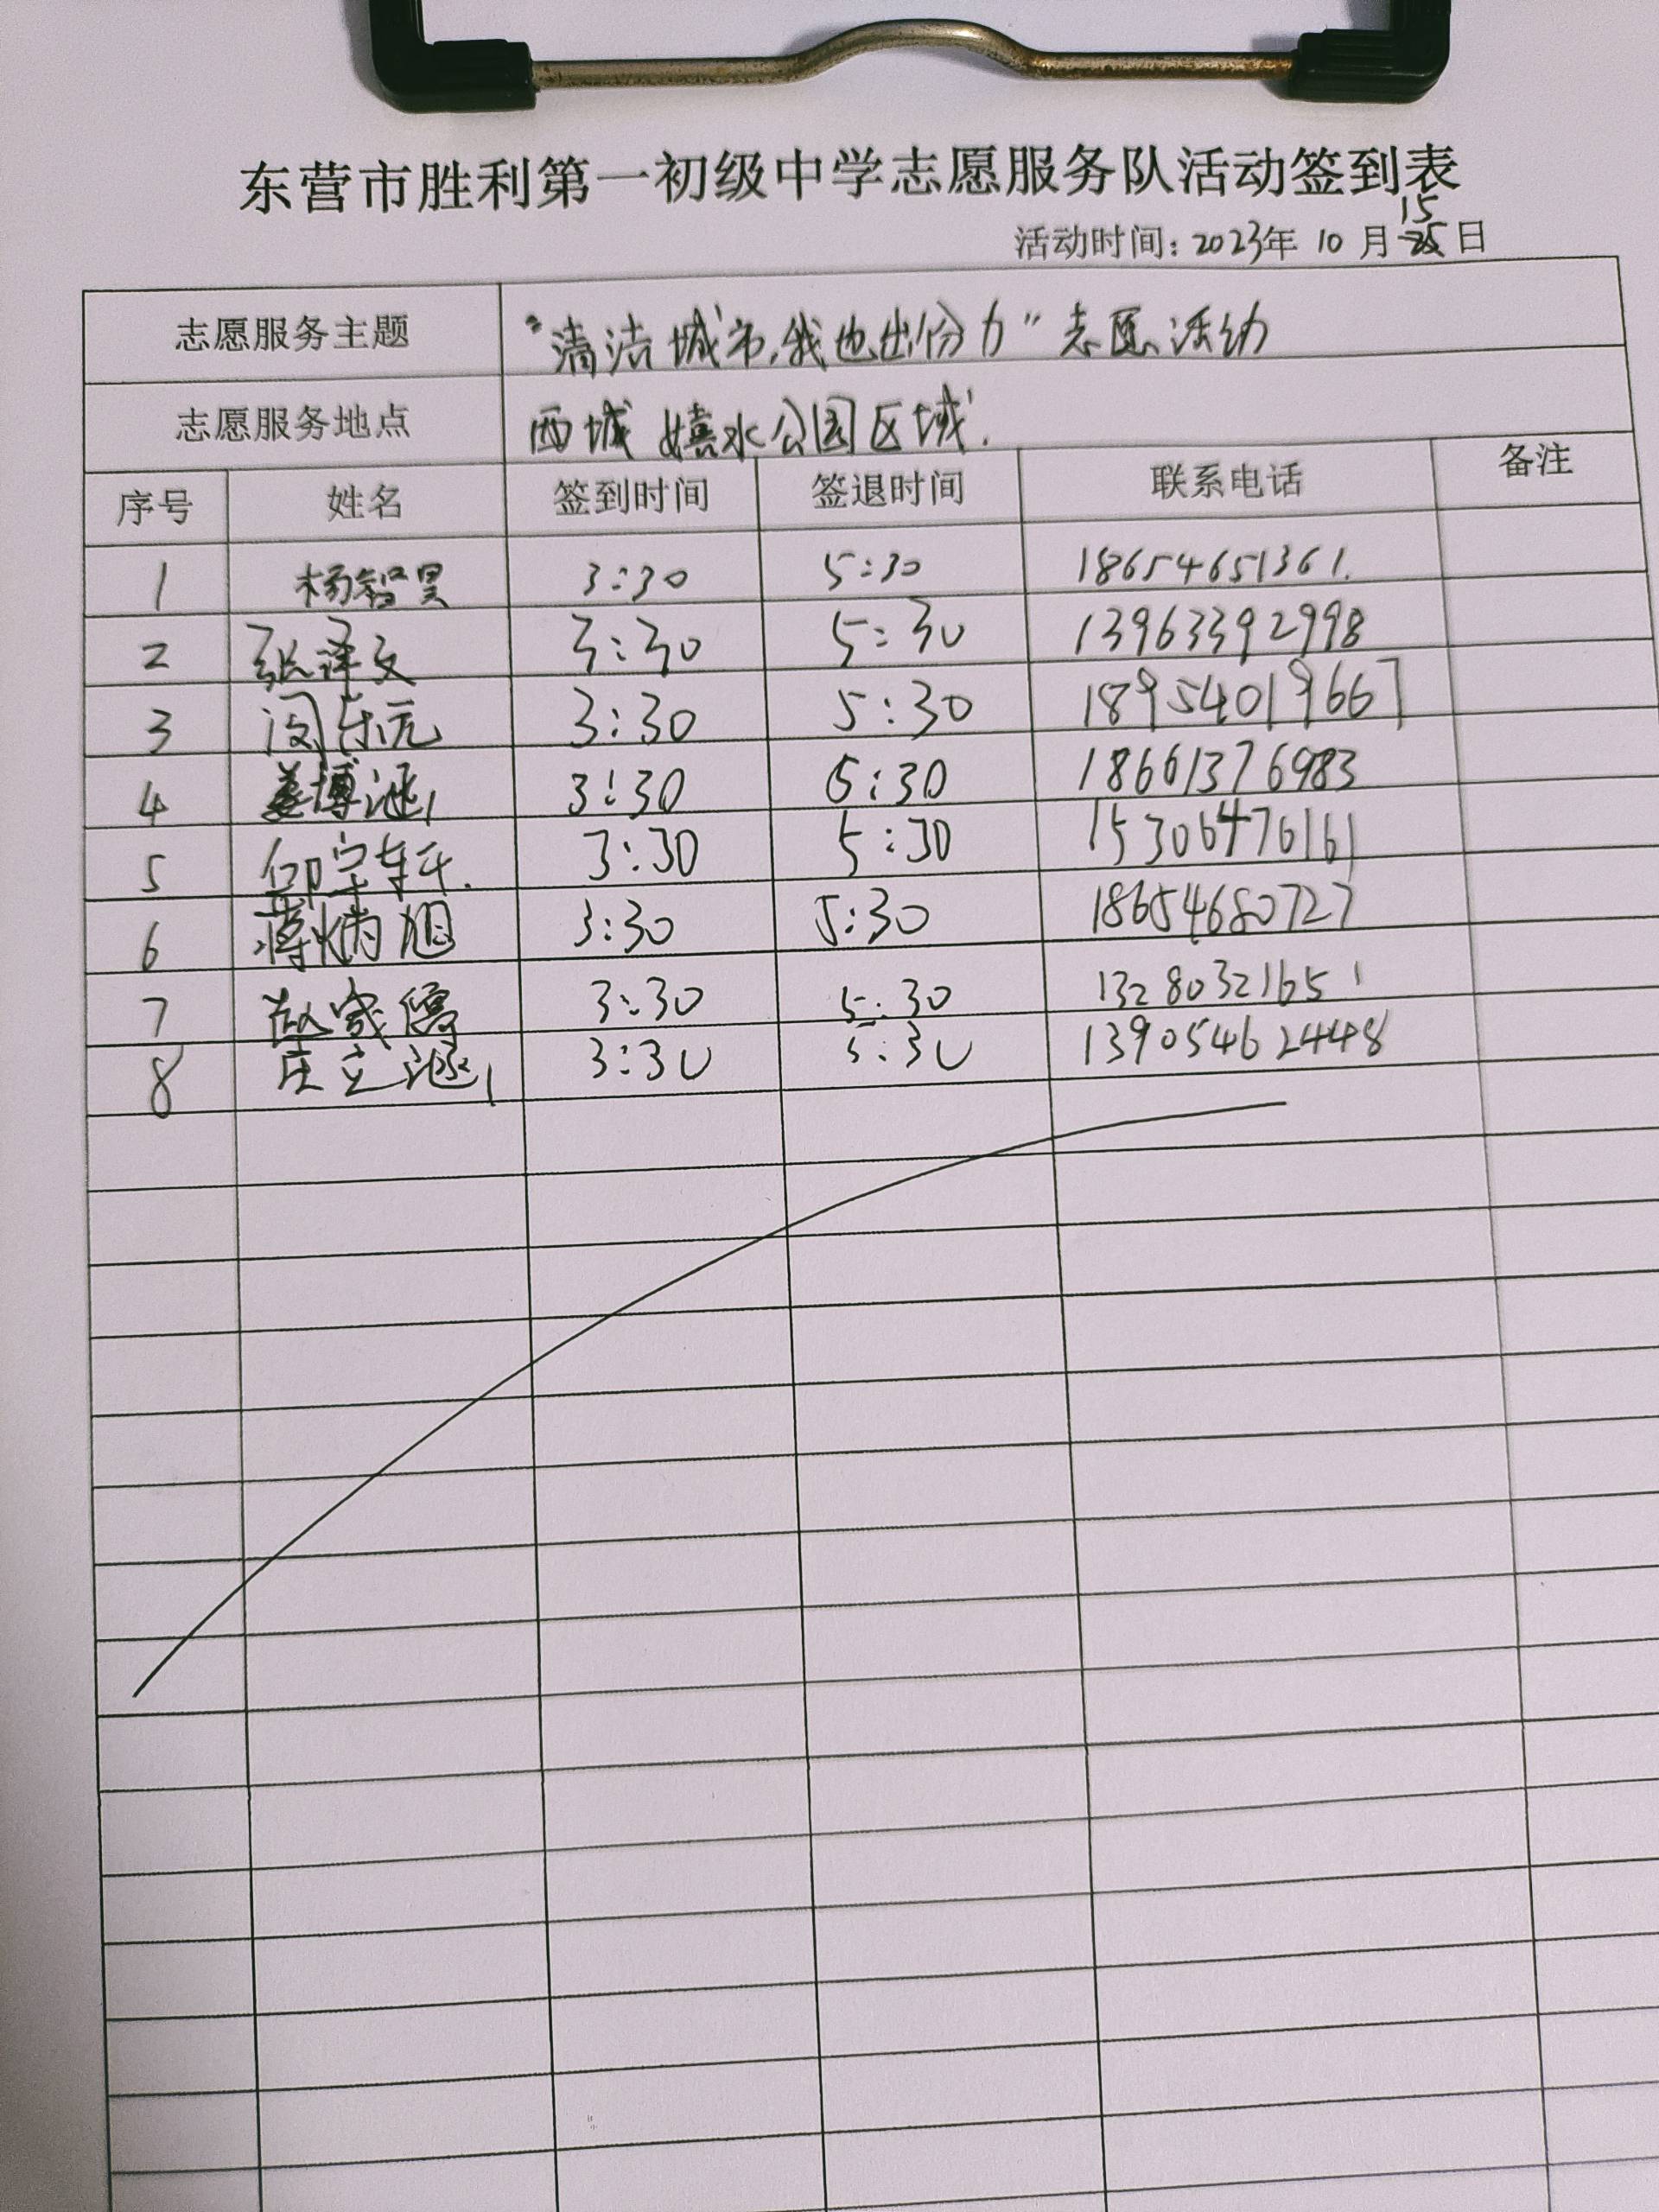 东营市胜利第一初级中学志愿服务队活动签到表
活动时间：2023年 10 月 15 日
志愿服务主题 “清洁城市,我也出份力”志愿活动
志愿服务地点 西城 嬉水公园区域.
序号 姓名 签到时间 签退时间 联系电话 备注
1 杨智昊 3:30 5:30 18654651361.
2 张译文 3:30 5:30 13963392998
3 闵乐元 3:30 5:30 18954019667
4 姜博涵 3:30 5:30 18661376983
5 宇轩. 3:30 5:30 15306476161
6 蒋炳旭 3:30 5:30 18654680727
7 赵家儒 3:30 5:30 13280321651
8 庄立涵 3:30 5:30 13905462448